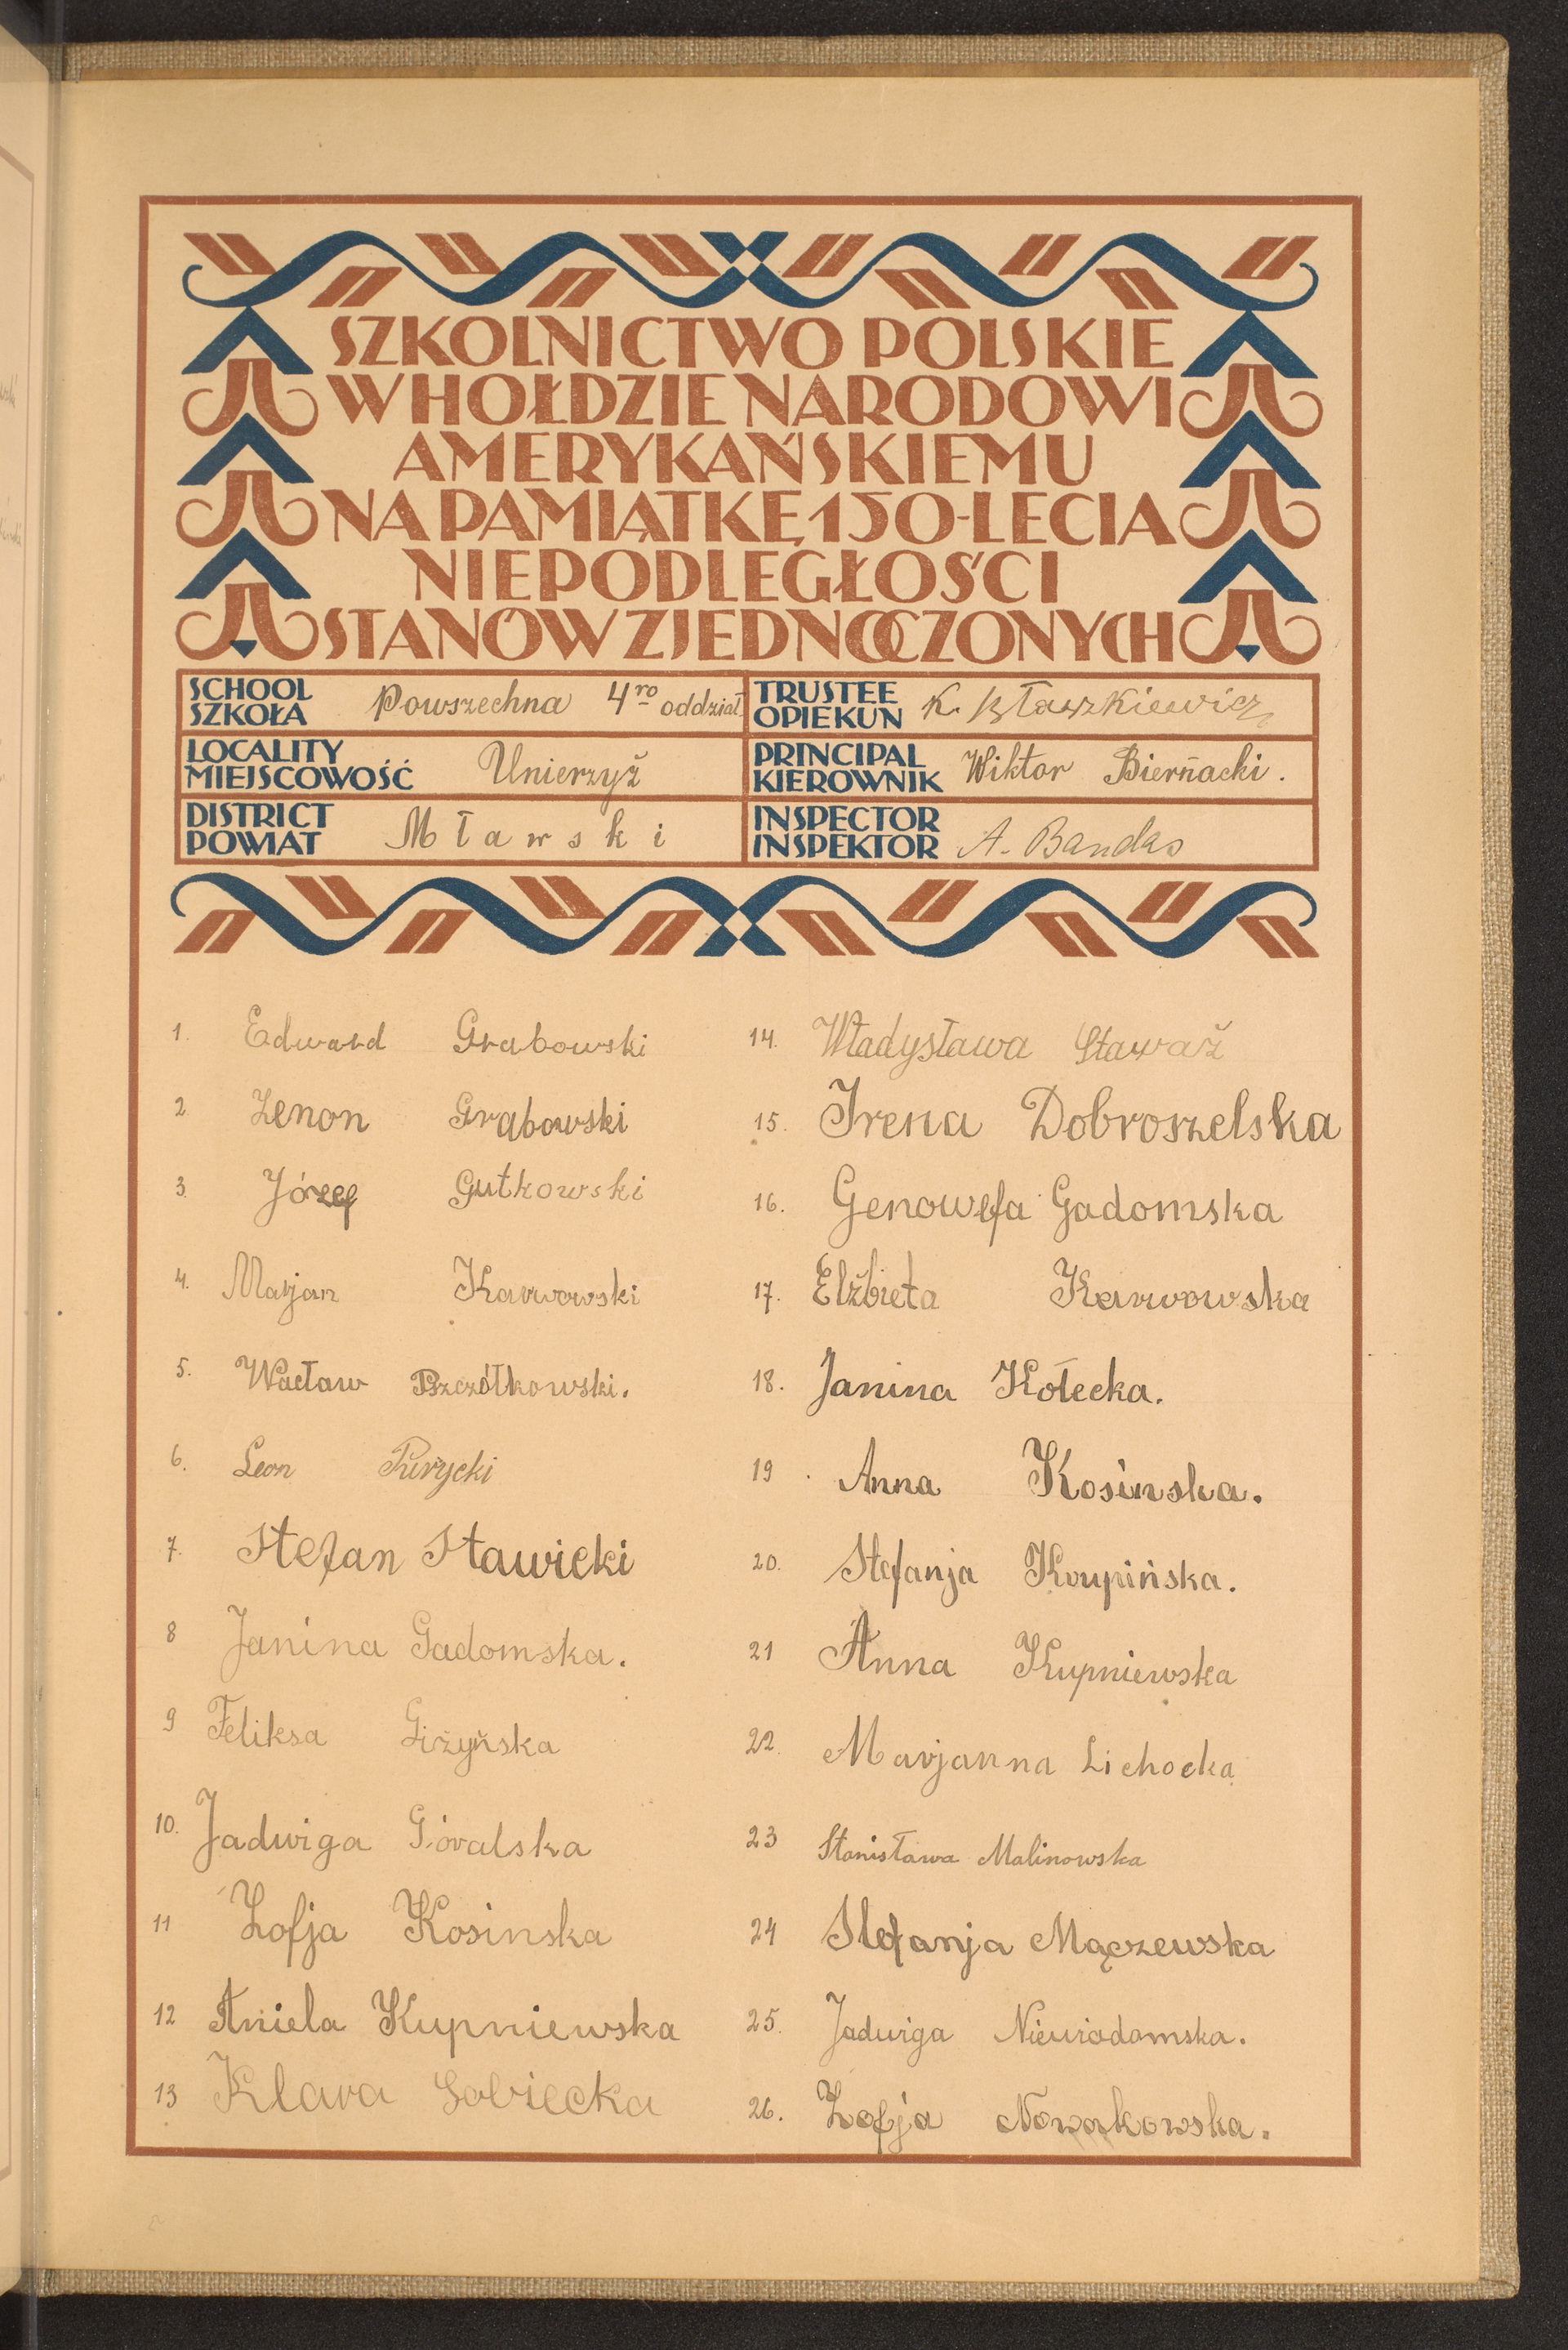 SZKOLNICTWO POLSKIE
W HOŁDZIE NARODOWI
AMERYKAŃSKIEMU
NA PAMIĄTKĘ 150-LECIA
NIEPODLEGŁOŚCI
STANÓW ZJEDNOCZONYCH
SCHOOL
SZKOŁA
Powszechna 4ro oddział
TRUSTEE
OPIEKUN
K. Błaszkiewicz
LOCALITY
MIEJSCOWOŚĆ
Unierzyż
PRINCIPAL
KIEROWNIK
Wiktor Biernacki.
DISTRICT
POWIAT
Mławski
INSPECTOR
INSPEKTOR
A. Bandko
1. Edward Grabowski
2 Zenon Grabowski
3. Józef Gutkowski
4. Marjan Karwowski
5. Wacław Pszczółkowski.
6. Leon Purzycki
7. Stefan Stawicki
8 Janina Gadomska.
9 Feliksa Giżyńska
10. Jadwiga Góralska
11 Zofja Kosinska
12 Aniela Kupniewska
13 Klara Sobiecka
14. Władysława Staważ
15. Irena Dobroszelska
16. Genowefa Gadomska
17. Elżbieta Karwowska
18. Janina Kołecka.
19. Anna Kosinska.
20. Stefanja Krupińska.
21 Anna Kupniewska
22. Marjanna Lichocka
23 Stanisława Malinowska
24 Stefanja Mączewska
25. Jadwiga Niewiadomska.
26. Zofja Nowakowska.